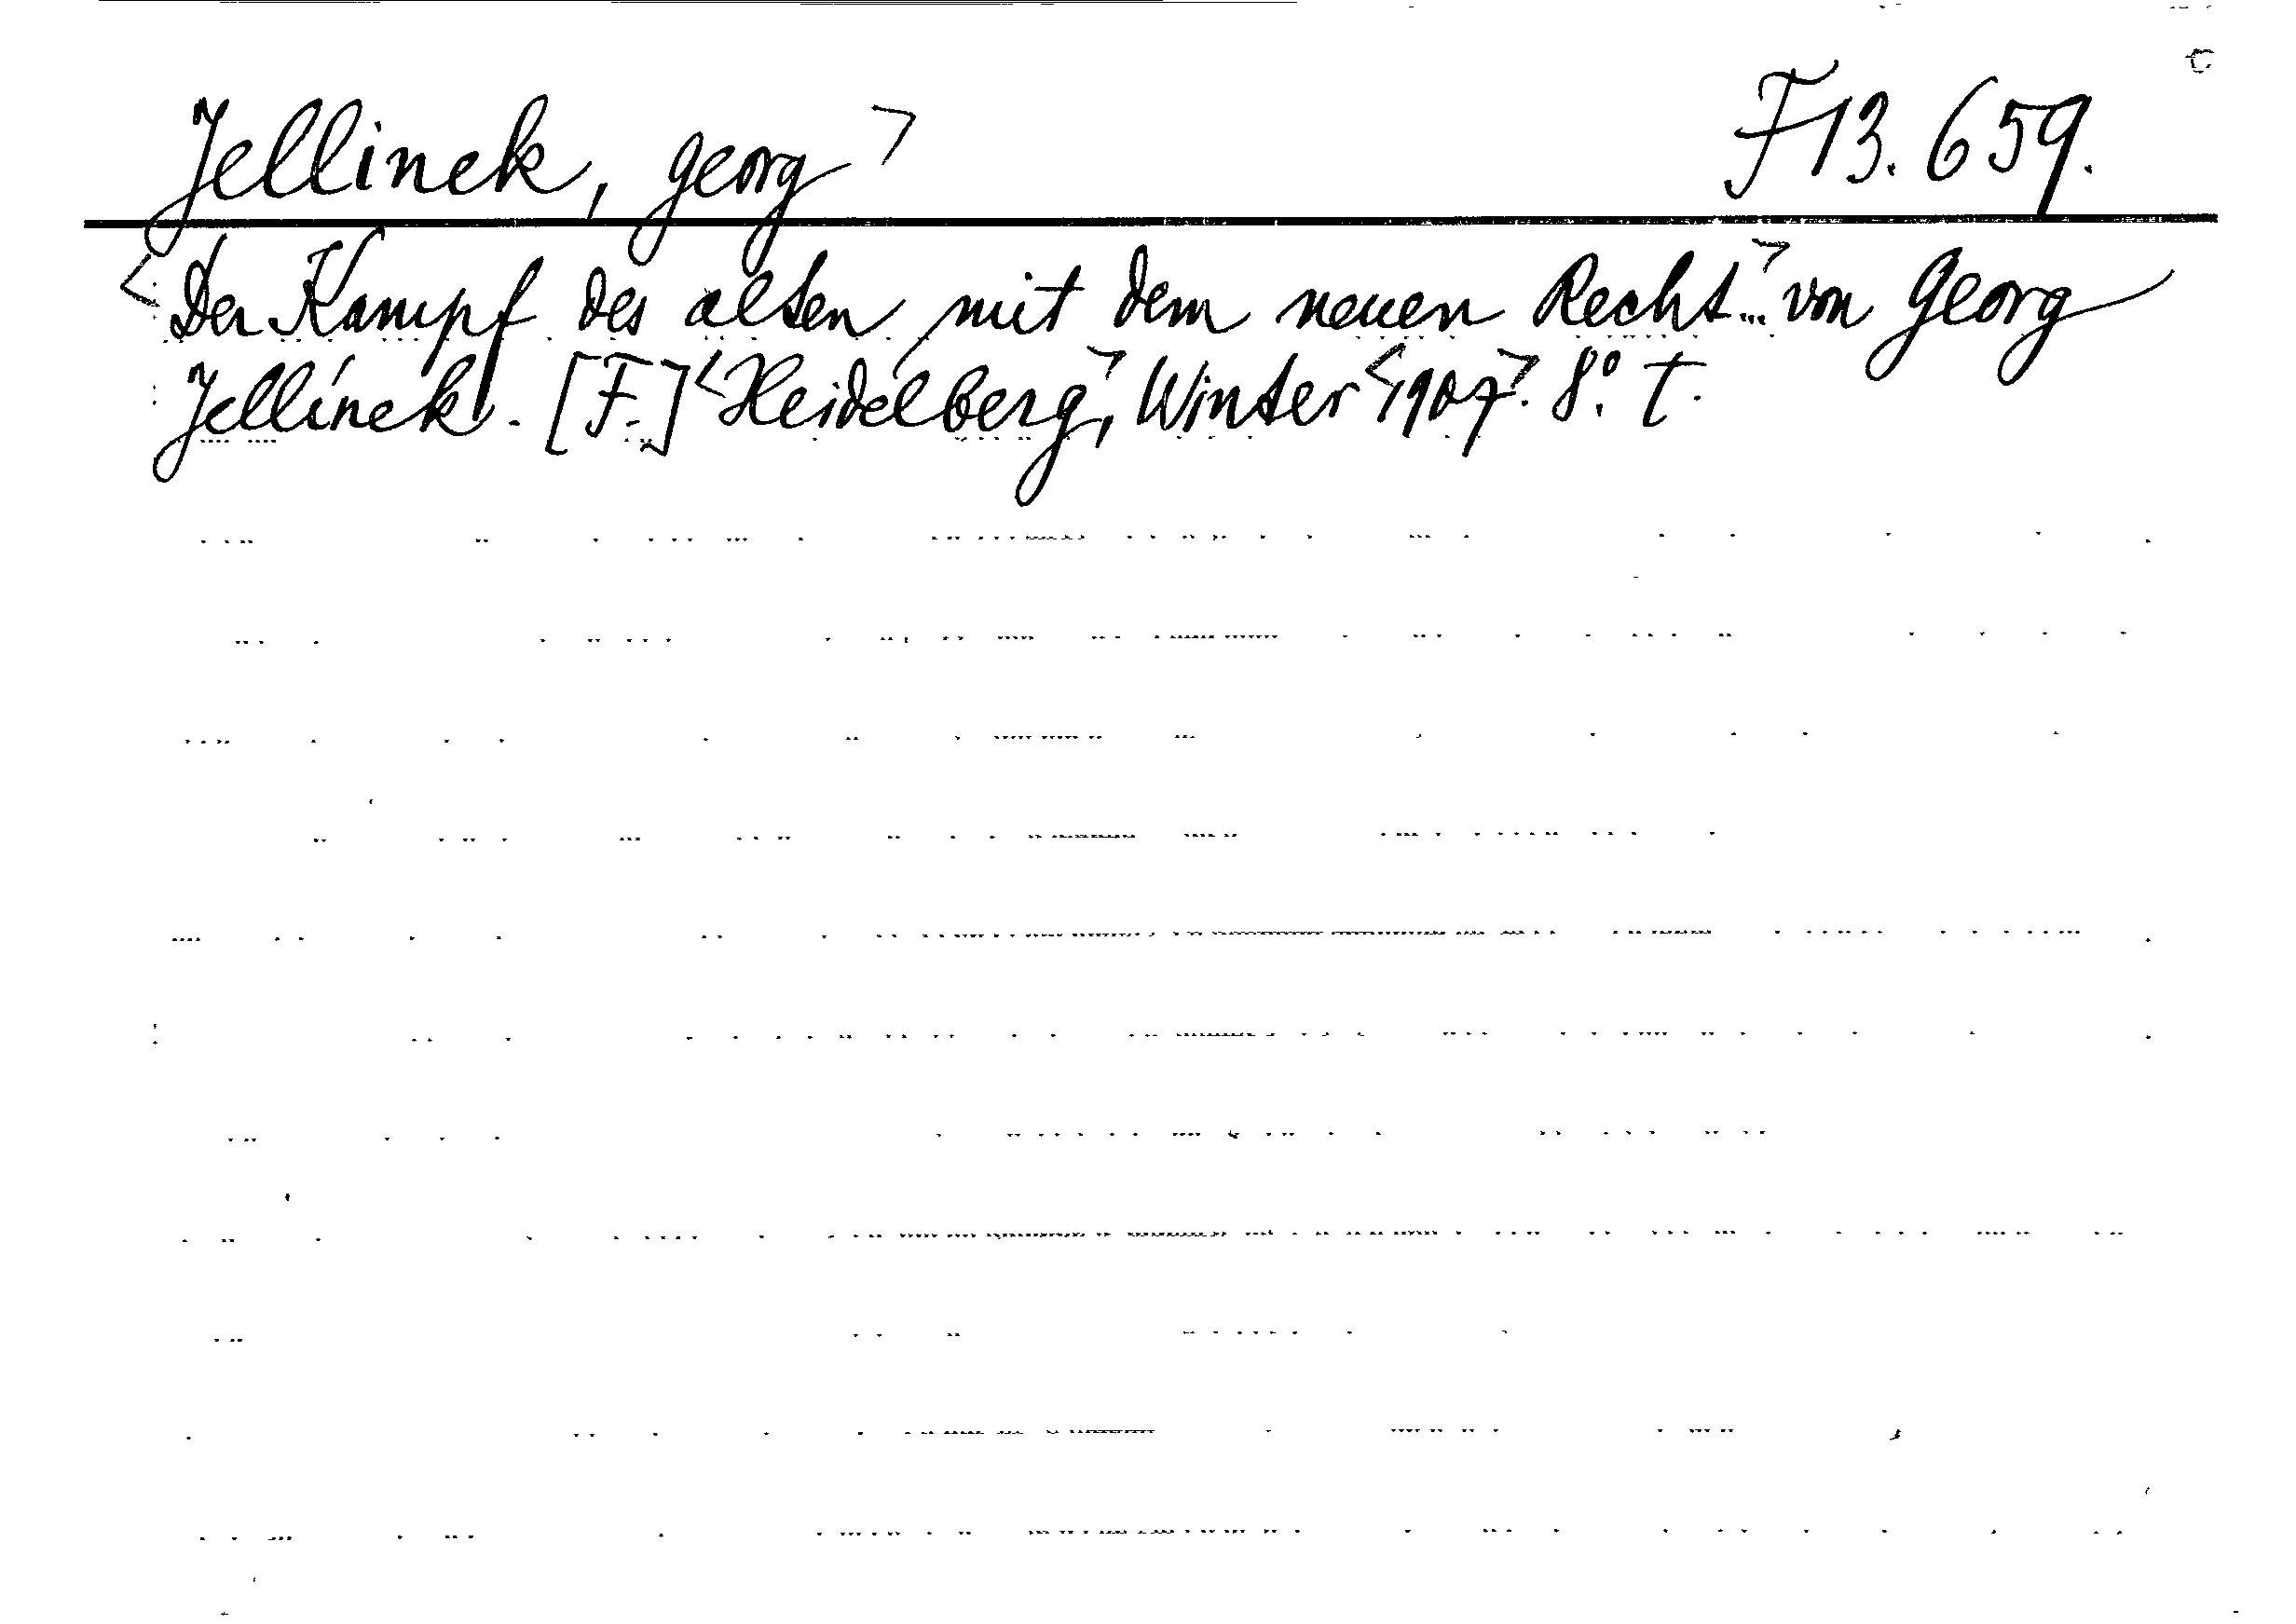 Jellinek, Georg > F 13.659.
<Der Kampf des alten mit dem neuen Recht...> von Georg
Jellinek. [F.] <Heidelberg>, Winter <1907>. 8°. T.